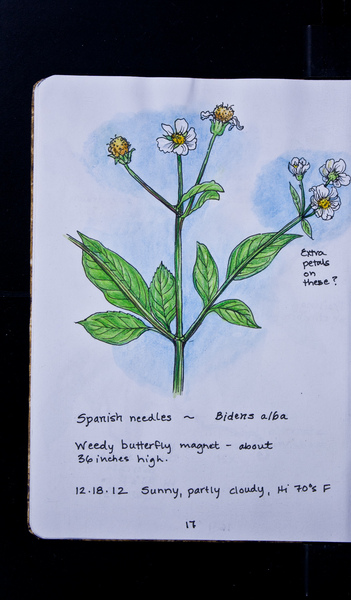 Extra
petals
on
these?
Spanish needles ~ Bidens alba
Weedy butterfly magnet - about
36 inches high.
12.18.12 Sunny, partly cloudy, Hi 70's F
17